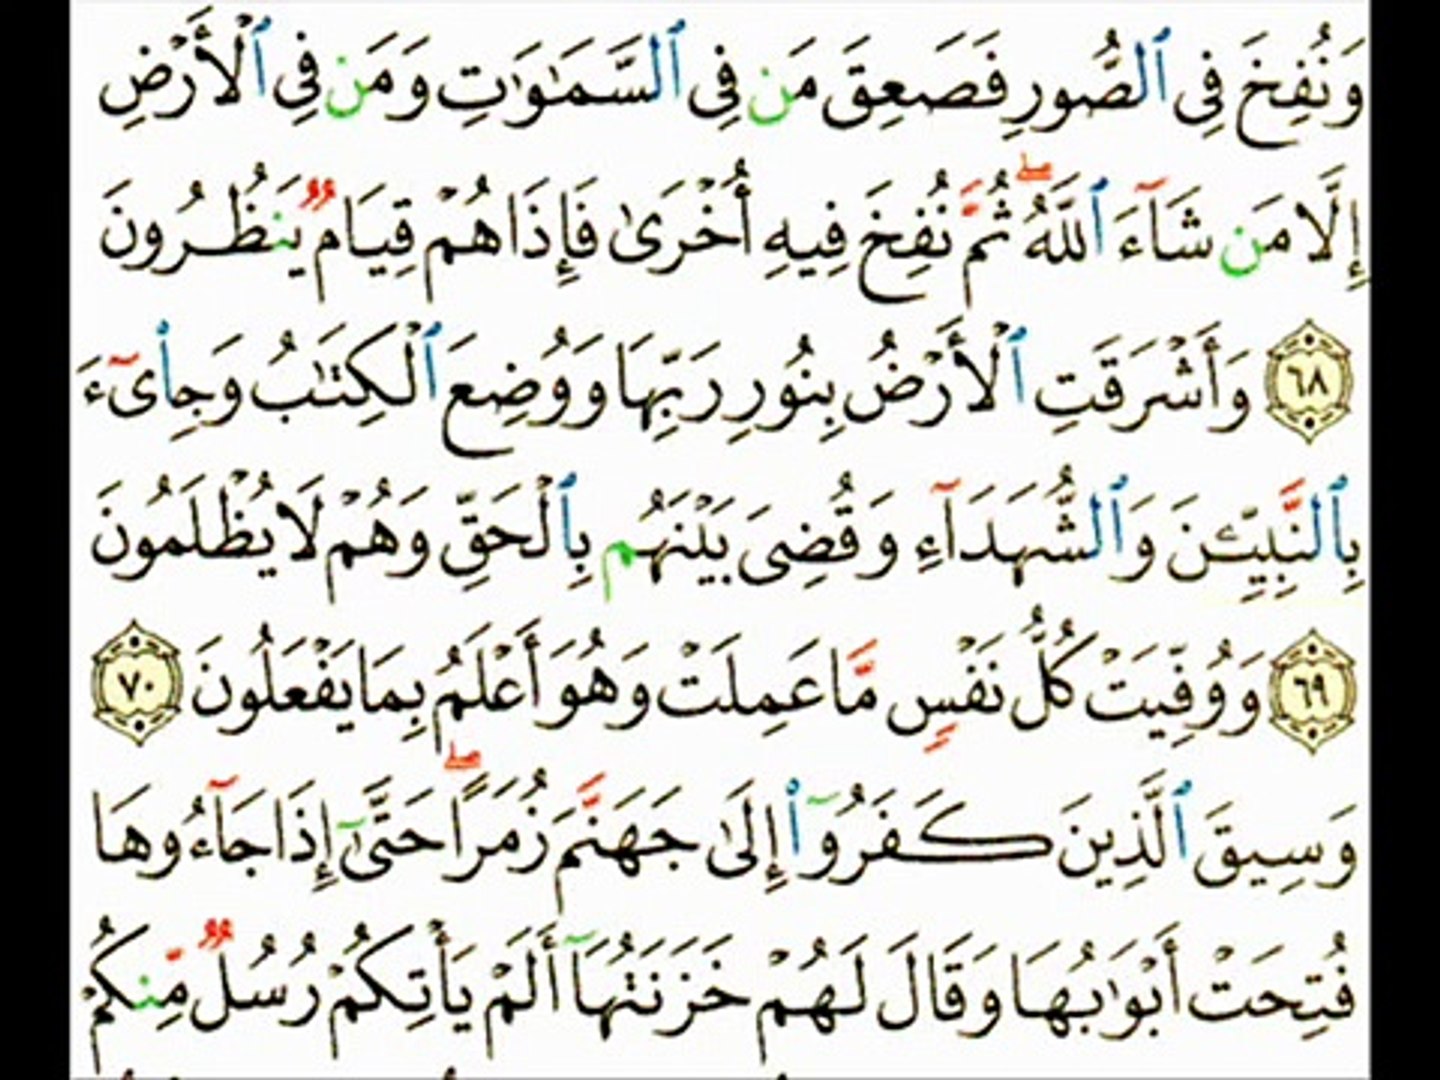 وَنُفِخَ فِى ٱلصُّورِ فَصَعِقَ مَن فِى ٱلسَّمَٰوَٰتِ وَمَن فِى ٱلْأَرْضِ
إِلَّا مَن شَآءَ ٱللَّهُ ۖ ثُمَّ نُفِخَ فِيهِ أُخْرَىٰ فَإِذَا هُمْ قِيَامٌ يَنظُرُونَ
٦٨ وَأَشْرَقَتِ ٱلْأَرْضُ بِنُورِ رَبِّهَا وَوُضِعَ ٱلْكِتَٰبُ وَجِا۟ىٓءَ
بِٱلنَّبِيِّـۧنَ وَٱلشُّهَدَآءِ وَقُضِىَ بَيْنَهُم بِٱلْحَقِّ وَهُمْ لَا يُظْلَمُونَ
٦٩ وَوُفِّيَتْ كُلُّ نَفْسٍ مَّا عَمِلَتْ وَهُوَ أَعْلَمُ بِمَا يَفْعَلُونَ ٧٠
وَسِيقَ ٱلَّذِينَ كَفَرُوٓا۟ إِلَىٰ جَهَنَّمَ زُمَرًا ۖ حَتَّىٰٓ إِذَا جَآءُوهَا
فُتِحَتْ أَبْوَٰبُهَا وَقَالَ لَهُمْ خَزَنَتُهَآ أَلَمْ يَأْتِكُمْ رُسُلٌ مِّنكُمْ